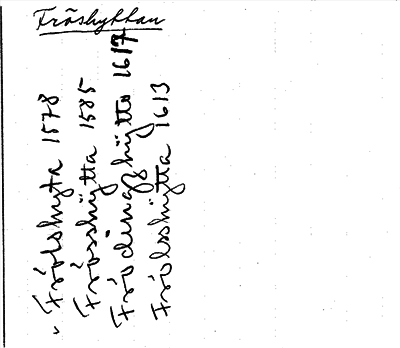 Fröshyttan
Frölshyta 1578
Frösshÿtta 1585
Frödingzhÿtto 1617
Frölsshÿtta 1613